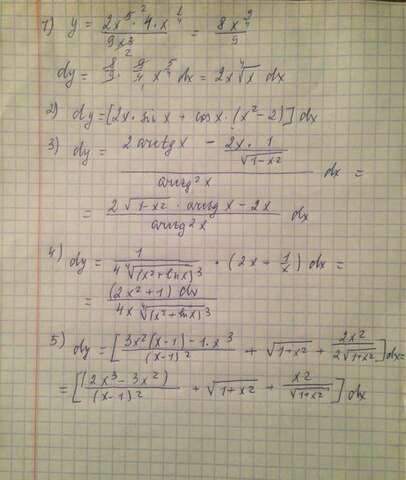 1) y = 2x⁵ · 4 · x^(1/4) / 9x³ = 8x^(9/4) / 9
dy = 8/9 · 9/4 x^(5/4) dx = 2x ⁴√x dx
2) dy = [2x · sin x + cos x · (x² − 2)] dx
3) dy = (2 arctg x − 2x · 1 / √(1−x²)) / arctg² x dx =
= (2 √(1−x²) · arctg x − 2x) / arctg² x dx
4) dy = 1 / (4 ⁴√(x²+ln x)³) · (2x + 1/x) dx =
= (2x² + 1) dx / (4x ⁴√(x²+ln x)³)
5) dy = [(3x²(x−1) − 1·x³) / (x−1)² + √(1+x²) + 2x² / (2√(1+x²))] dx =
= [(2x³ − 3x²) / (x−1)² + √(1+x²) + x² / √(1+x²)] dx